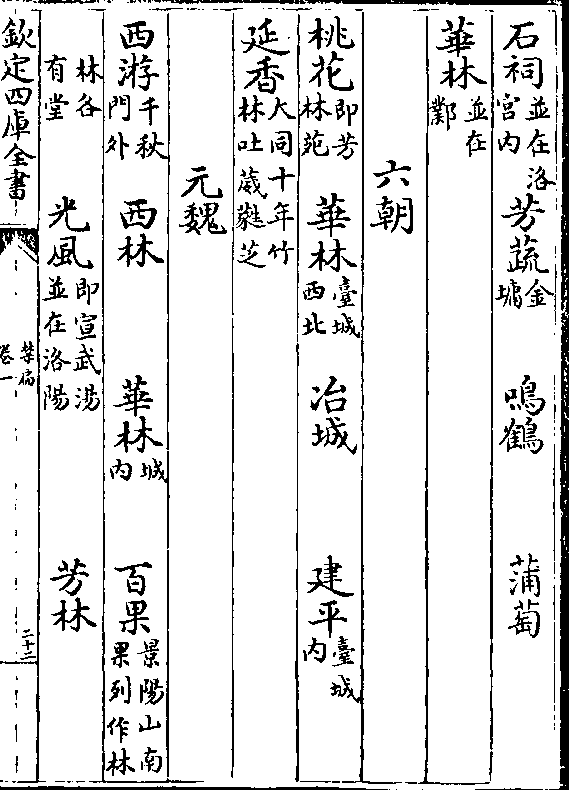 石祠並在洛宮内 芳蔬金墉 鳴鶴 蒲萄
華林並在鄴
六朝
桃花即芳林苑 華林臺城西北 冶城 建平臺城内
延香大同十年竹林吐葳蕤芝
元魏
西游千秋門外 西林 華林城内 百果景陽山南果列作林
林各有堂 光風即宣武湯並在洛陽 芳林
欽定四庫全書 禁扁卷一 二十二